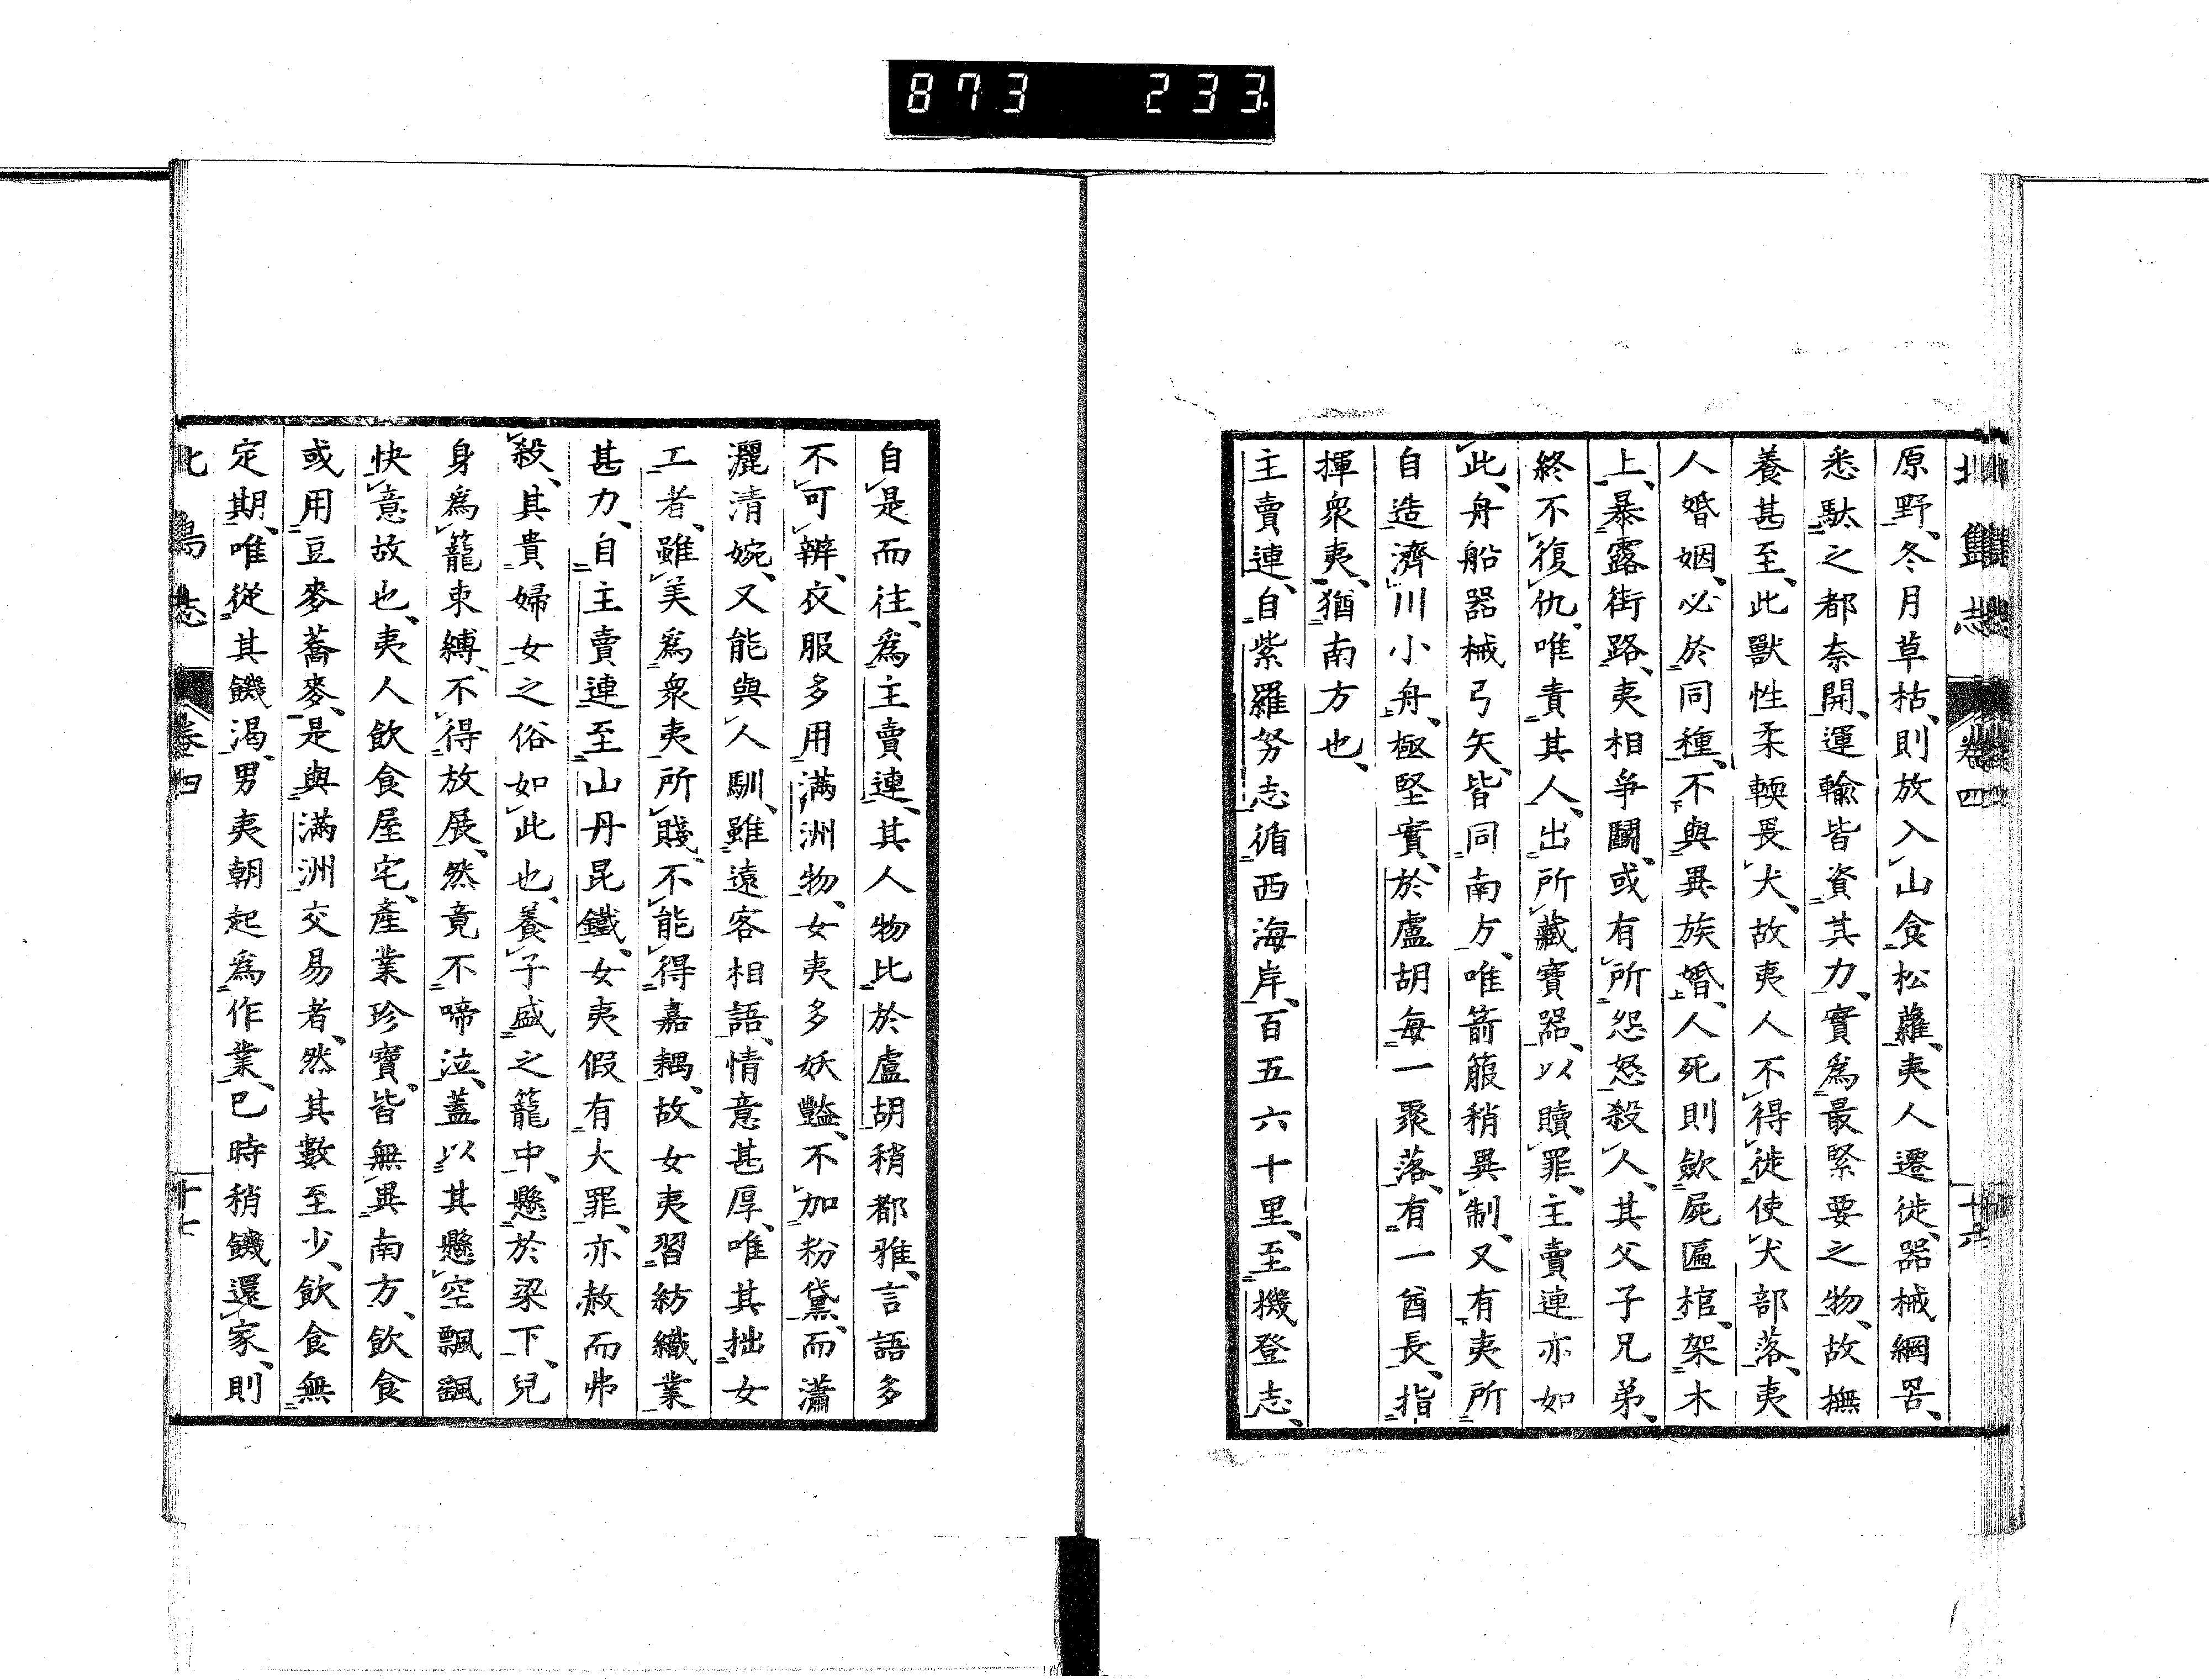 873 233.
北島志 卷四 十六
原野、冬月草枯、則放入山食松蘿、夷人遷徙、器械網罟、
悉駄之都奈開、運輸皆資其力、實爲最緊要之物、故撫
養甚至、此獸性柔輭畏犬、故夷人不得徙使犬部落、夷
人婚姻、必於同種、不與異族婚、人死則斂屍匜棺、架木
上、暴露街路、夷相爭鬭、或有所怨怒殺人、其父子兄弟、
終不復仇、唯責其人、出所藏寶器、以贖罪、主賣連亦如
此、舟船器械弓矢、皆同南方、唯箭箙稍異制、又有夷所
自造濟川小舟、極堅實、於盧胡每一聚落、有一酋長、指
揮衆夷、猶南方也、
主賣連、自紫羅努志循西海岸、百五六十里、至機登志、
自是而往、爲主賣連、其人物比於盧胡稍都雅、言語多
不可辨、衣服多用滿洲物、女夷多妖豔、不加粉黛、而瀟
灑清婉、又能與人馴、雖遠客相語、情意甚厚、唯其拙女
工者、雖美爲衆夷所賤、不能得嘉耦、故女夷習紡織業
甚力、自主賣連至山丹昆鐵、女夷假有大罪、亦赦而弗
殺、其貴婦女之俗如此也、養子盛之籠中、懸於梁下、兒
身爲籠束縛、不得放展、然竟不啼泣、蓋以其懸空飄颻
快意故也、夷人飲食屋宅、產業珍寶、皆無異南方、飲食
或用豆麥蕎麥、是與滿洲交易者、然其數至少、飲食無
定期、唯從其饑渴、男夷朝起爲作業、巳時稍饑還家、則
北島志 卷四 十七